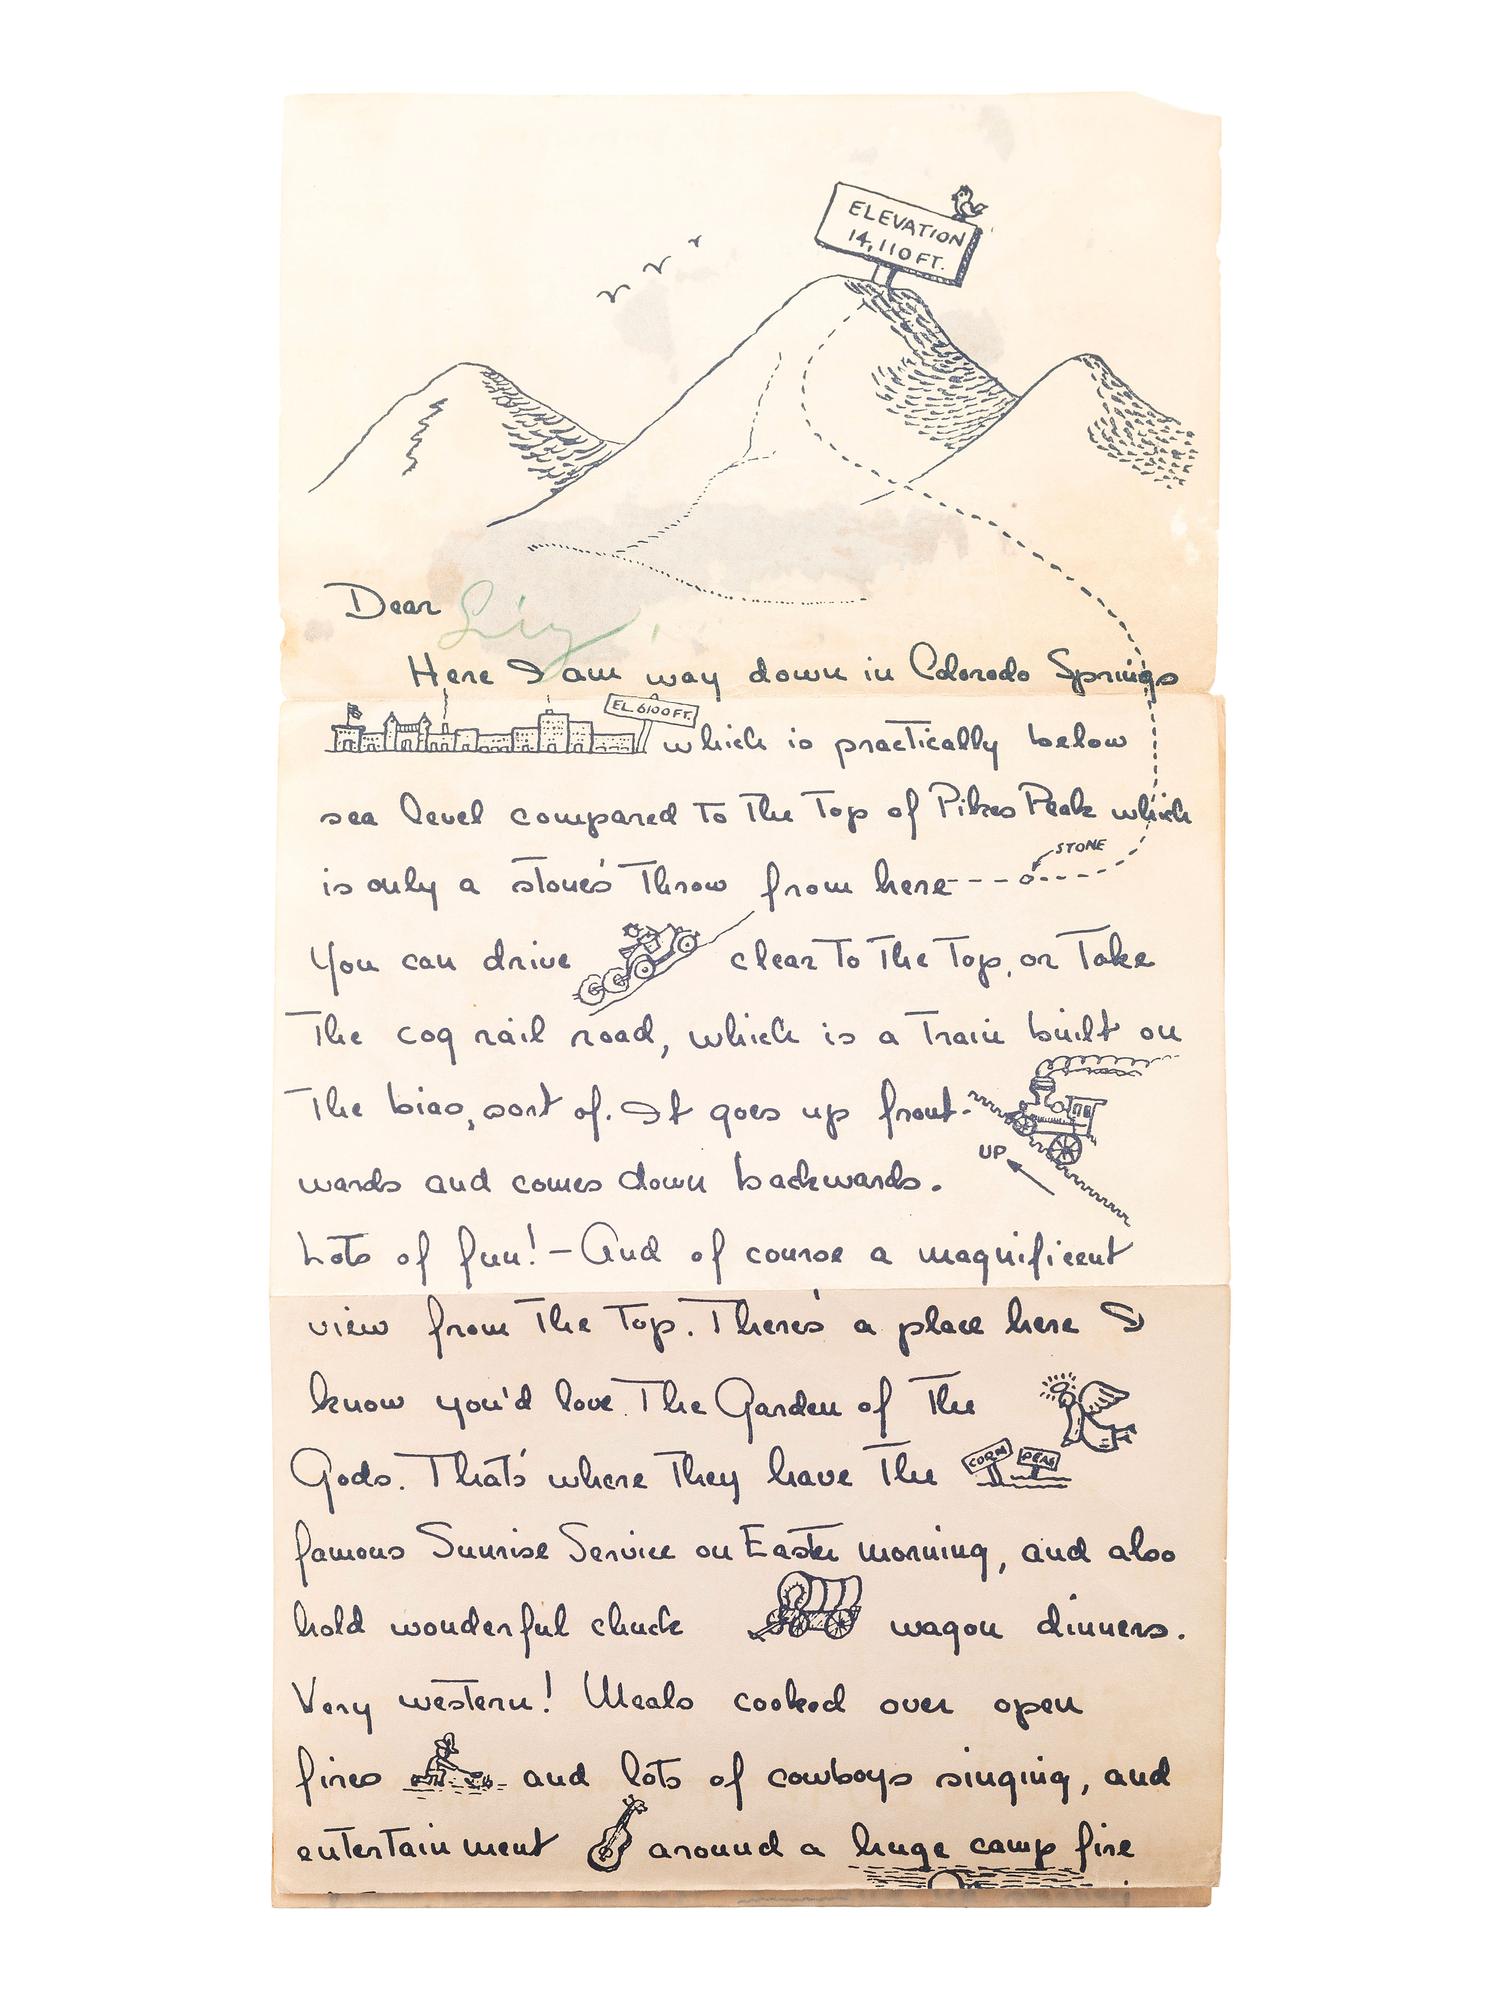 ELEVATION
14,110 FT.
Dear Liz,
Here I am way down in Colorodo Springs
EL. 6100 FT.
which is practically below
sea level compared to the top of Pikes Peak which
STONE
is only a stone's throw from here
You can drive clear to the top, or take
the coq rail road, which is a train built on
the bias, sort of. It goes up front-
UP
wards and comes down backwards.
Lots of fun! - And of course a magnificent
view from the top. There's a place here I
know you'd love. The Garden of the
Gods. That's where they have the
CORN PEAS
famous Sunrise Service on Easter morning, and also
hold wonderful chuck wagon dinners.
Very western! Meals cooked over open
fires and lots of cowboys singing, and
entertainment around a huge camp fire